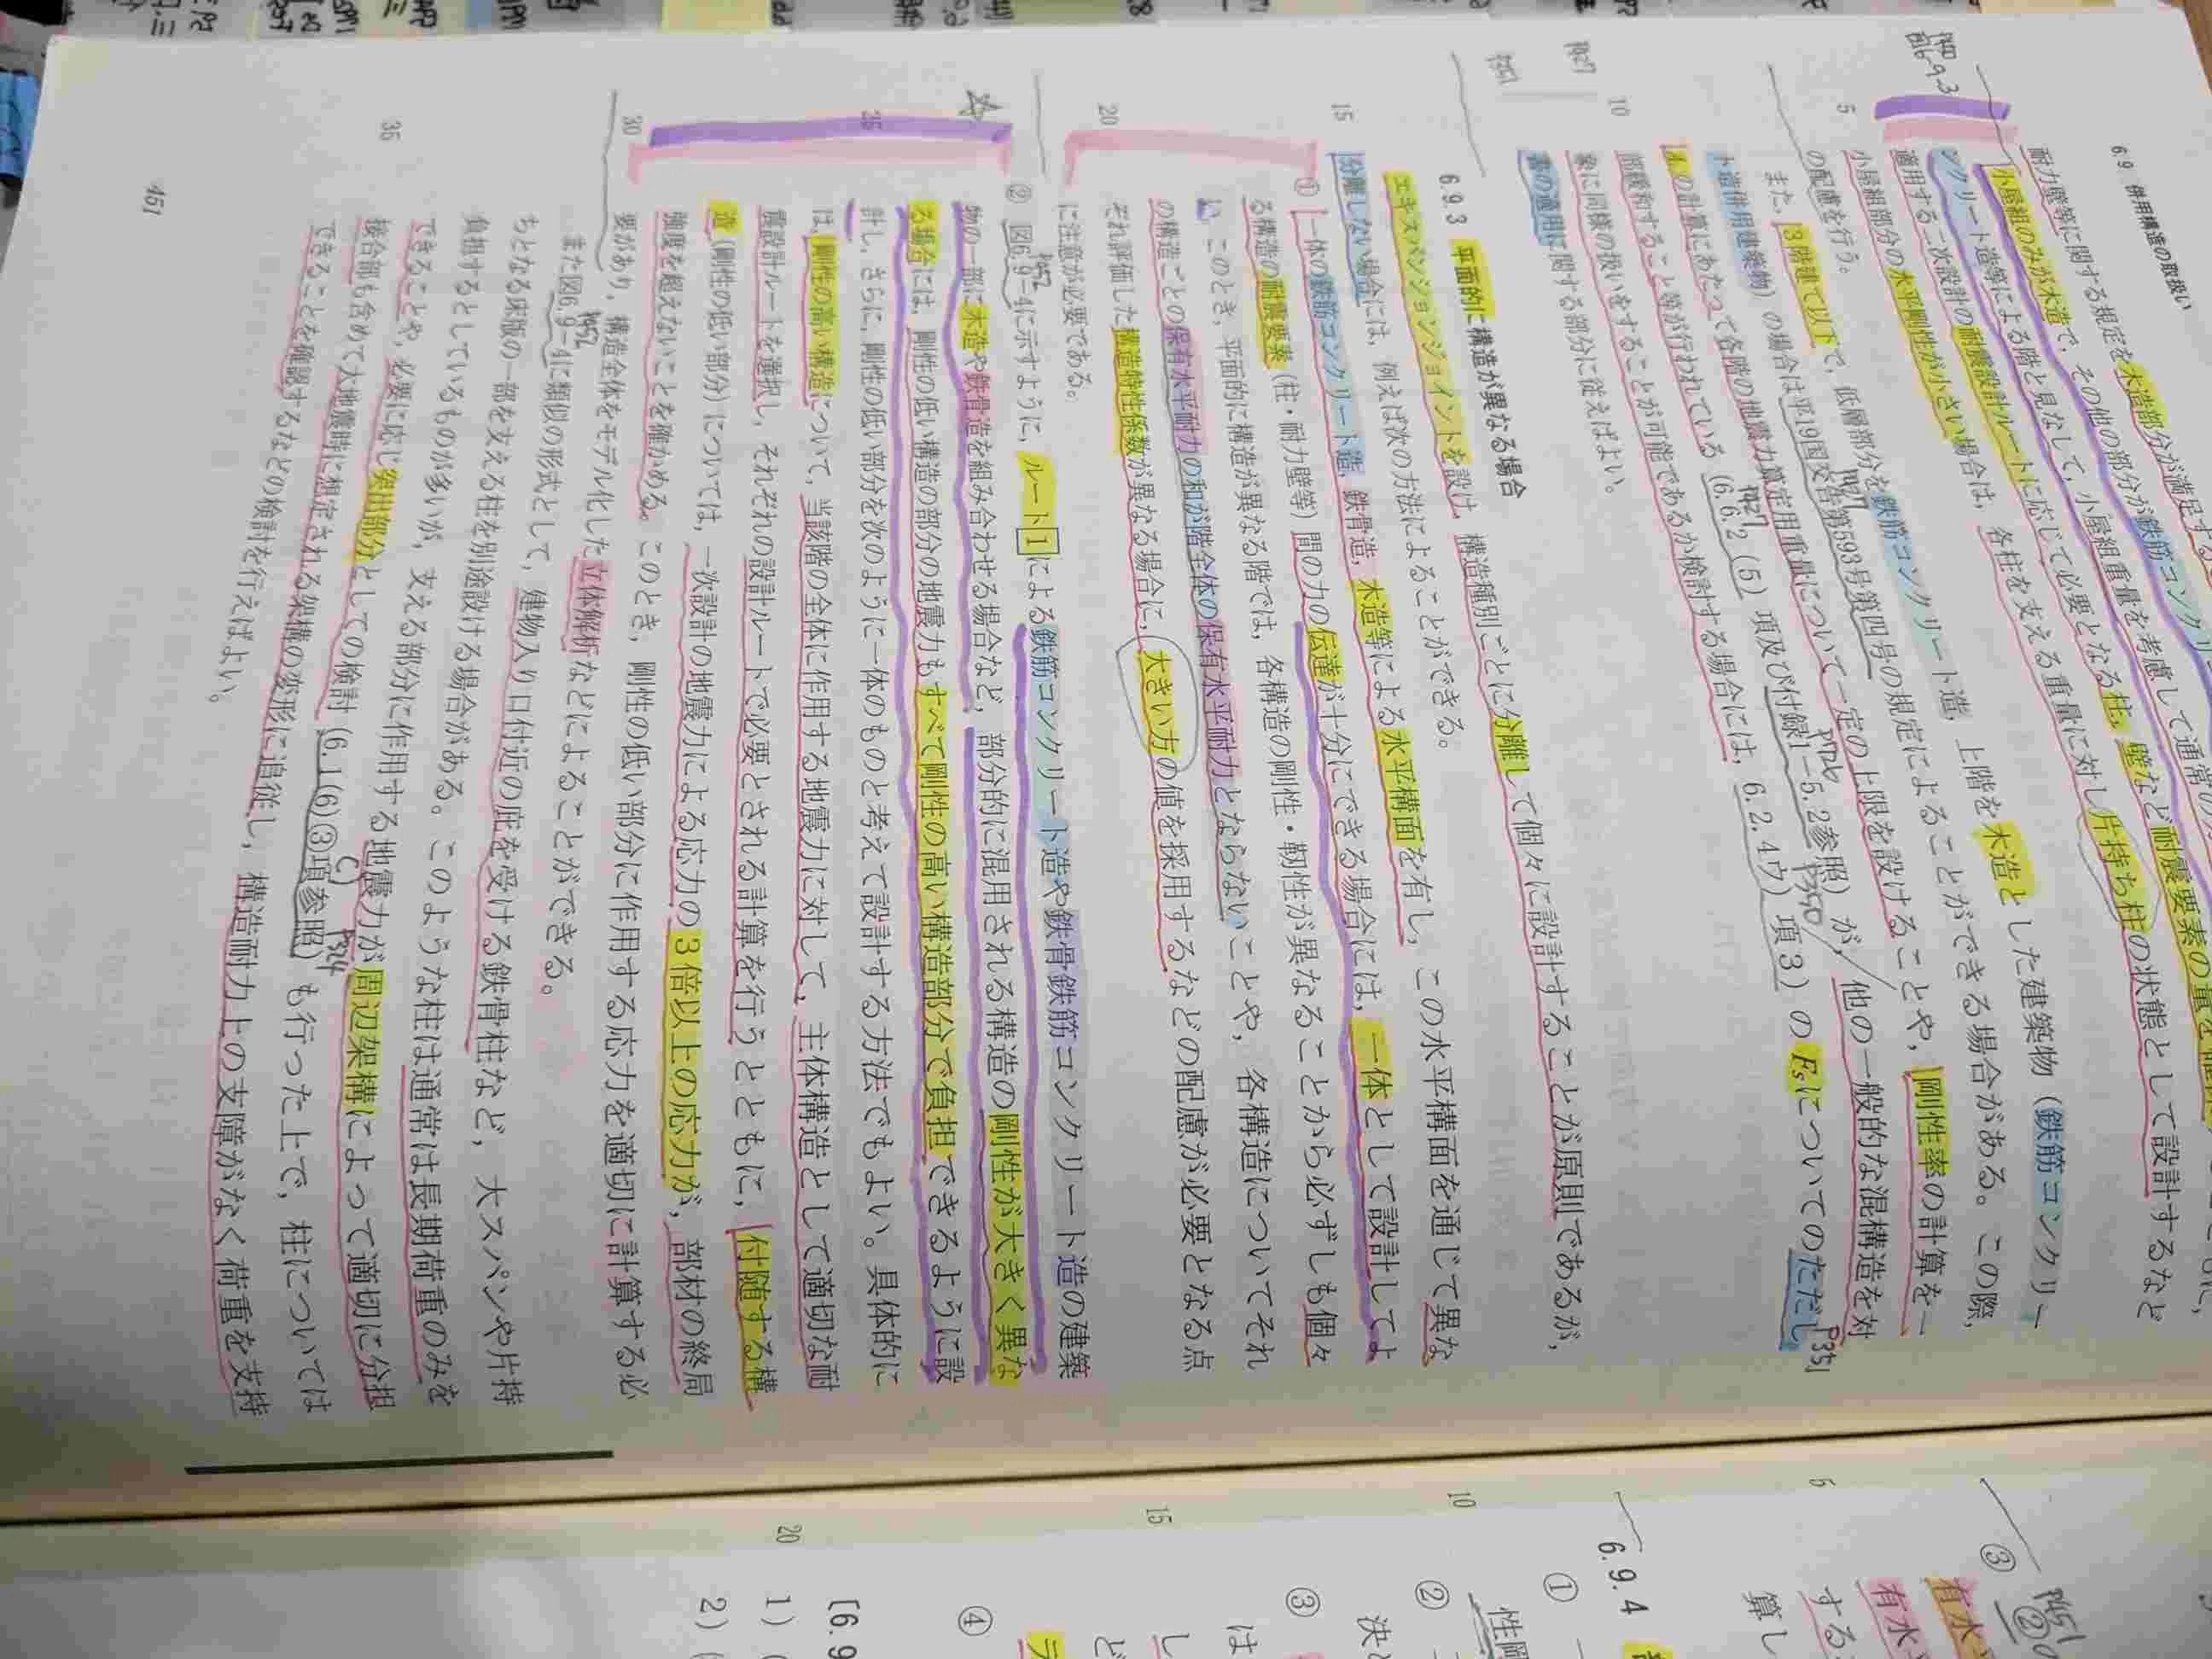 6.9 併用構造の取扱い
耐力壁等に関する規定を木造部分が満足する
小屋組のみが木造で、その他の部分が鉄筋コンクリー
ンクリート造等による階と見なして、小屋組重量を考慮して通常の
適用する二次設計の耐震設計ルートに応じて必要となる柱、壁など耐震要素の量を
小屋組部分の水平剛性が小さい場合は、各柱を支える重量に対し片持ち柱の状態として設計するなど
の配慮を行う。
また、3階建て以下で、低層部分を鉄筋コンクリート造、上階を木造とした建築物（鉄筋コンクリー
ト造併用建築物）の場合は平19国交告第593号第四号の規定によることができる場合がある。この際、
の計算にあたって各階の地震力算定用重量について一定の上限を設けることや、剛性率の計算を一
部緩和すること等が行われている（6.6.2（5）項及び付録1-5.2参照）が、他の一般的な混構造を対
象に同様の扱いをすることが可能であるか検討する場合には、6.2.4ウ）項3）のFsについてのただし
書の適用に関する部分に従えばよい。
6.9.3 平面的に構造が異なる場合
エキスパンションジョイントを設け、構造種別ごとに分離して個々に設計することが原則であるが、
分離しない場合には、例えば次の方法によることができる。
① 一体の鉄筋コンクリート造、鉄骨造、木造等による水平構面を有し、この水平構面を通じて異な
る構造の耐震要素（柱・耐力壁等）間の力の伝達が十分にできる場合には、一体として設計してよ
い。このとき、平面的に構造が異なる階では、各構造の剛性・靭性が異なることから必ずしも個々
の構造ごとの保有水平耐力の和が階全体の保有水平耐力とならないことや、各構造についてそれ
ぞれ評価した構造特性係数が異なる場合に、大きい方の値を採用するなどの配慮が必要となる点
に注意が必要である。
② 図6.9-4に示すように、ルート1による鉄筋コンクリート造や鉄骨鉄筋コンクリート造の建築
物の一部に木造や鉄骨造を組み合わせる場合など、部分的に混用される構造の剛性が大きく異な
る場合には、剛性の低い構造の部分の地震力もすべて剛性の高い構造部分で負担できるように設
計し、さらに、剛性の低い部分を次のように一体のものと考えて設計する方法でもよい。具体的に
は、剛性の高い構造について、当該階の全体に作用する地震力に対して、主体構造として適切な耐
震設計ルートを選択し、それぞれの設計ルートで必要とされる計算を行うとともに、付随する構
造（剛性の低い部分）については、一次設計の地震力による応力の3倍以上の応力が、部材の終局
強度を超えないことを確かめる。このとき、剛性の低い部分に作用する応力を適切に計算する必
要があり、構造全体をモデル化した立体解析などによることができる。
また図6.9-4に類似の形式として、建物入り口付近の庇を受ける鉄骨柱など、大スパンや片持
ちとなる床版の一部を支える柱を別途設ける場合がある。このような柱は通常は長期荷重のみを
負担するとしているものが多いが、支える部分に作用する地震力が周辺架構によって適切に分担
できることや、必要に応じ突出部分としての検討（6.1(6)③項参照）も行った上で、柱については
接合部も含めて大地震時に想定される架構の変形に追従し、構造耐力上の支障がなく荷重を支持
できることを確認するなどの検討を行えばよい。
451
6.9.4
①
②
③
④
[6.9
1)
2)